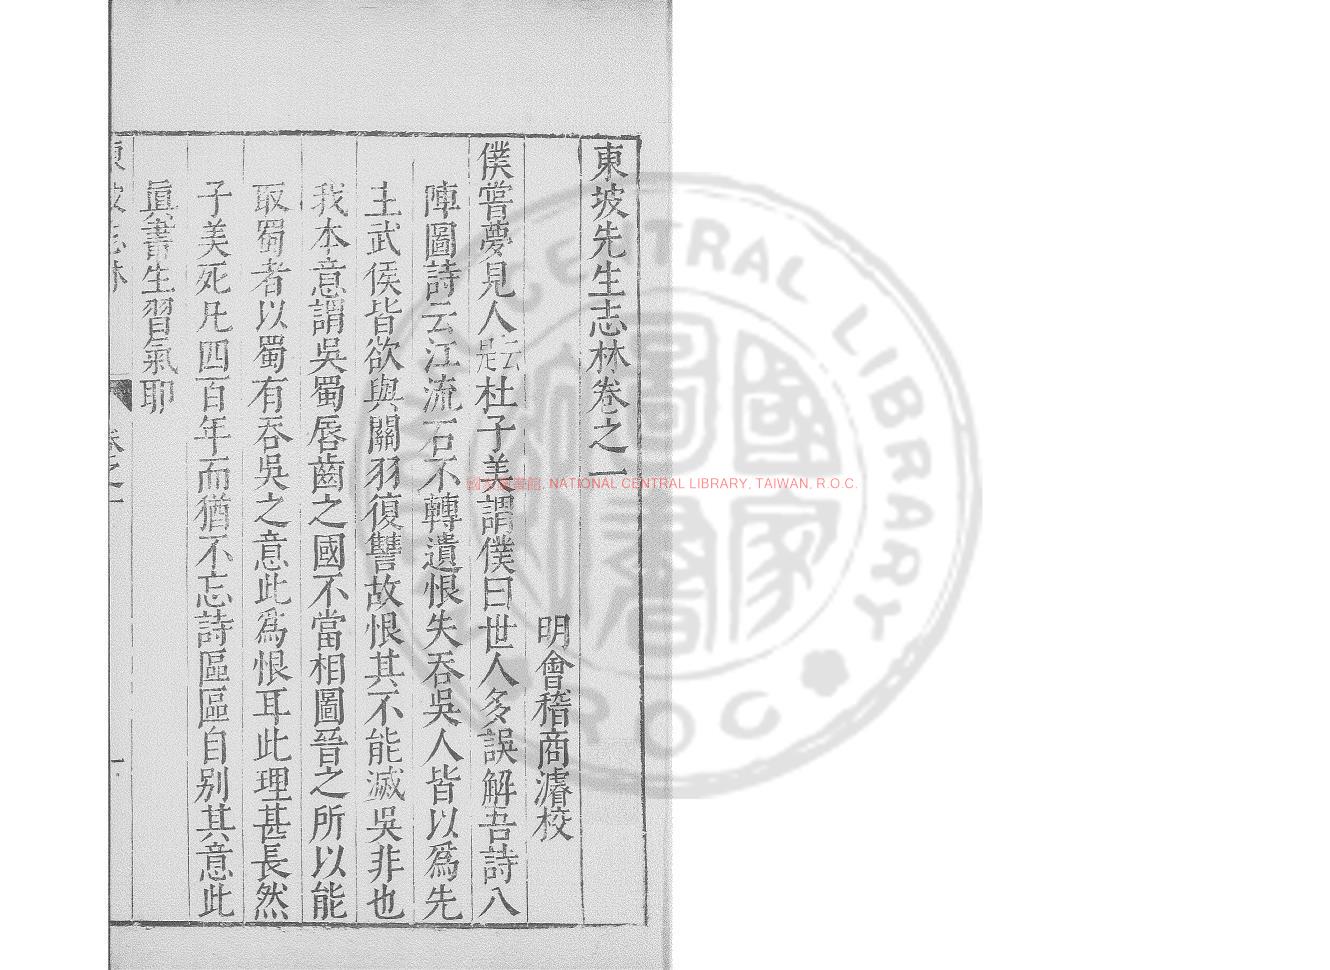 東坡先生志林卷之一
明會稽商濬校
僕嘗夢見人云是杜子美謂僕曰世人多誤解吾詩八
陣圖詩云江流石不轉遺恨失吞吳人皆以爲先
主武侯皆欲與關羽復讐故恨其不能滅吳非也
我本意謂吳蜀唇齒之國不當相圖晉之所以能
取蜀者以蜀有吞吳之意此爲恨耳此理甚長然
子美死凡四百年而猶不忘詩區區自別其意此
眞書生習氣耶
東坡志林 卷之一 一
國家圖書館, NATIONAL CENTRAL LIBRARY, TAIWAN, R.O.C.
國家圖書館
CENTRAL LIBRARY
R.O.C